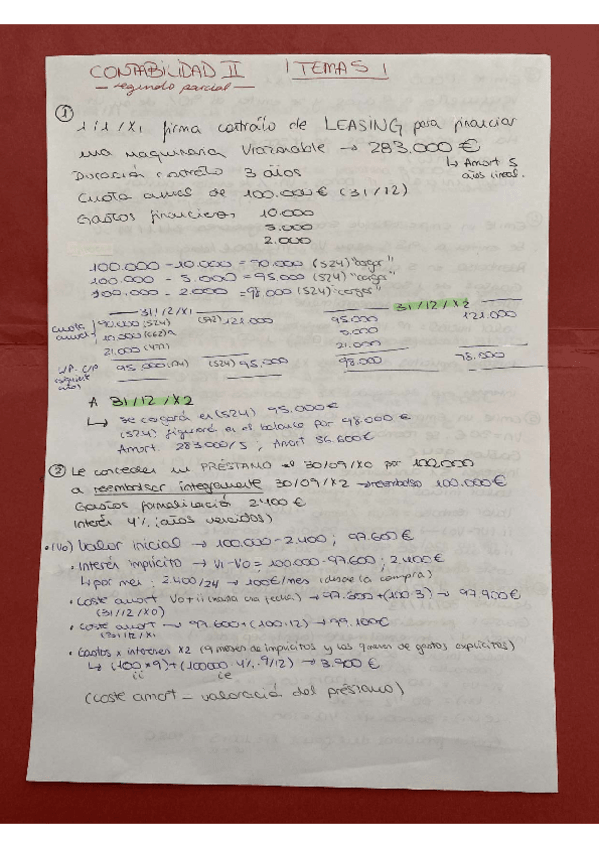 CONTABILIDAD II | TEMA 5 |
— segundo parcial —
①
1/1/X1 firma contrato de LEASING para financiar
una maquinaria V.razonable → 283.000 €
↳ Amort 5
años lineal.
Duración contrato 3 años
Cuota anual de 100.000 € (31/12)
Gastos financieros 10.000
5.000
2.000
100.000 - 10.000 = 90.000 (524) "cargar"
100.000 - 5.000 = 95.000 (524) "cargar"
100.000 - 2.000 = 98.000 (524) "cargar"
31/12/X1
31/12/X2
cuota anual
90.000 (524) (572) 121.000
10.000 (662)
21.000 (472)
95.000 121.000
5.000
21.000
95.000 (174) (524) 95.000
98.000 98.000
A 31/12/X2
↳ se cargará en (524) 95.000 €
(524) figurará en el balance por 98.000 €
Amort. 283.000/5, Amort 56.600 €
② Le conceden un PRÉSTAMO el 30/09/X0 por 100.000
a reembolsar íntegramente 30/09/X2 → reembolso 100.000 €
Gastos formalización 2.400 €
Interés 4% (años vencidos)
• (Vo) Valor inicial → 100.000 - 2.400 ; 97.600 €
• Interés implícito → Vi - Vo = 100.000 - 97.600 ; 2.400 €
↳ por mes : 2.400/24 → 100 €/mes (desde la compra)
• Coste amort Vo + ii (hasta esa fecha) → 97.600 + (100·3) → 97.900 €
(31/12/X0)
• Coste amort → 97.600 + (100·12) → 99.100 €
(31/12/X1
• Gastos x intereses X2 (9 meses de implícitos y los 9 meses de gastos explícitos)
↳ (100 * 9) + (100000·4%·9/12) → 3.900 €
ii ie
(coste amort = valoración del préstamo)